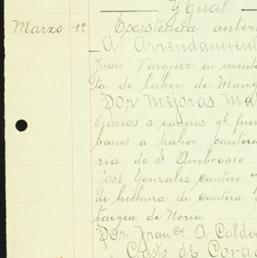 Ygual
Marzo 1º Existencia anter
A Arrendamient
Juan Vazquez en cuenta
ta de labor de
Por Mejoras Ma
a carros qe. fue
a traher cantera
ria de S. Ambrosio
José Gonzalez cantero
de hechura de cantera
targea de Noria
Por Franco. A Calder
Gasto de